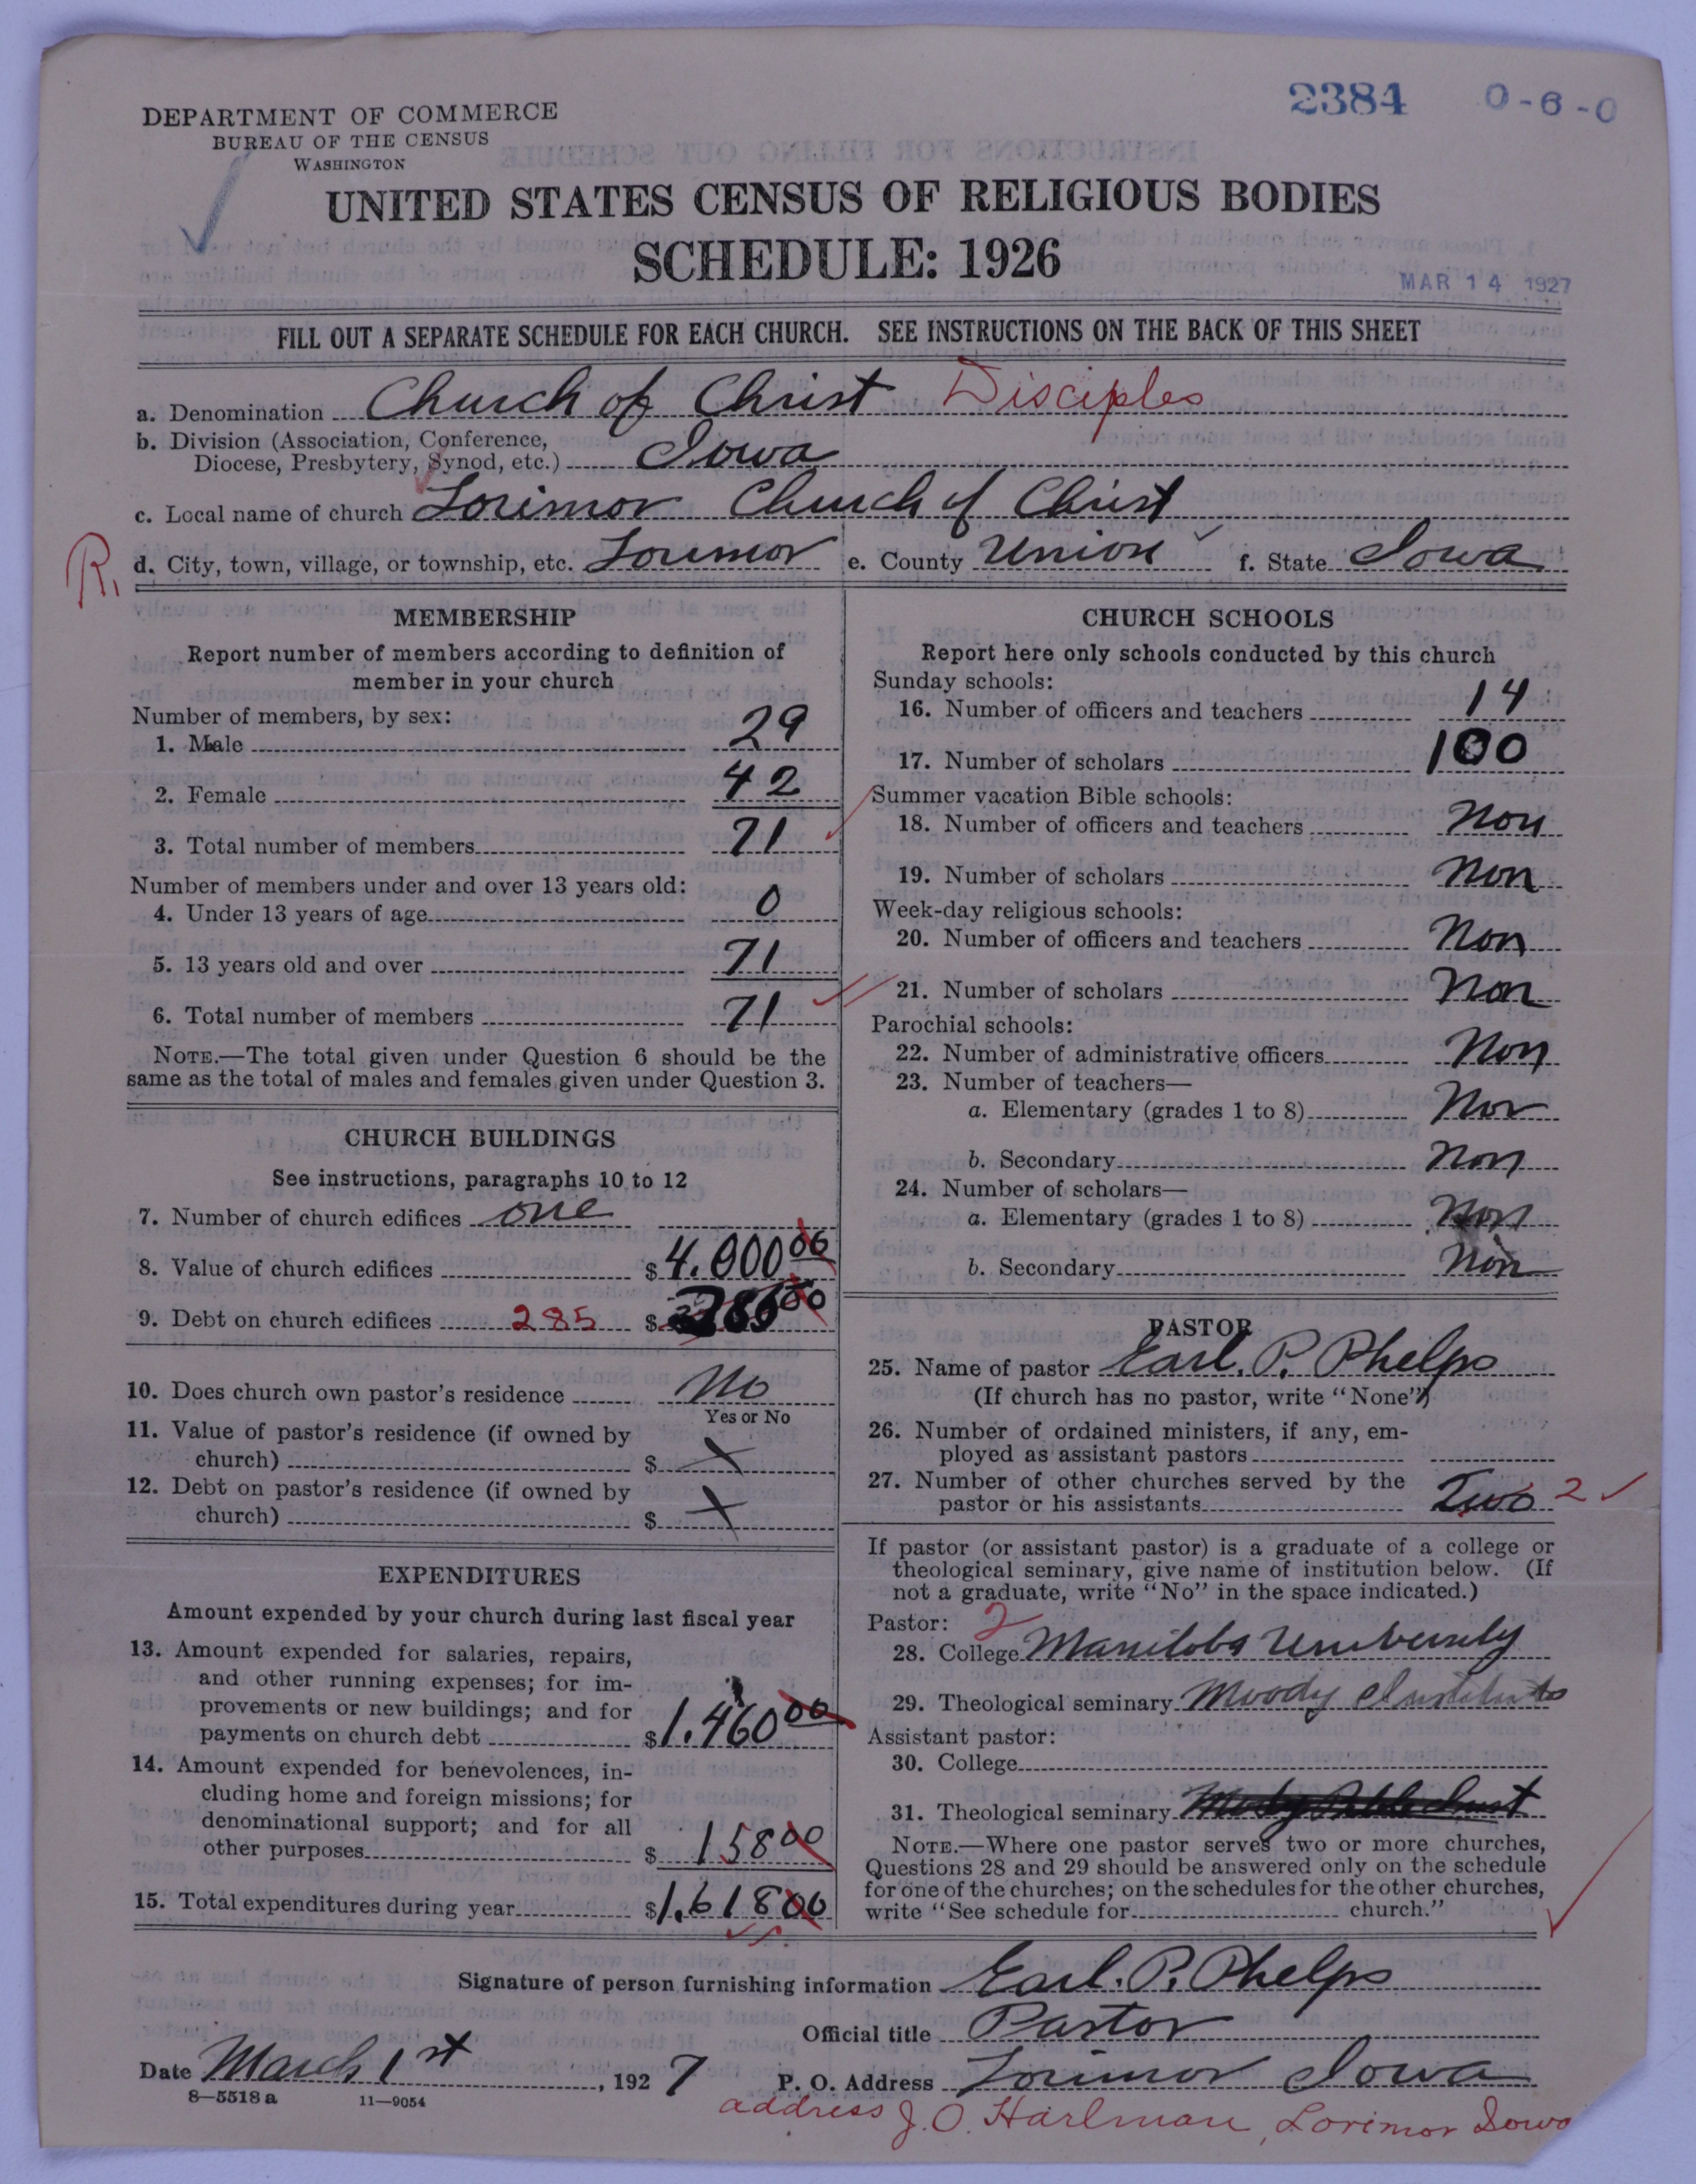 2384 0-6-0
DEPARTMENT OF COMMERCE
BUREAU OF THE CENSUS
WASHINGTON
UNITED STATES CENSUS OF RELIGIOUS BODIES
SCHEDULE: 1926
MAR 14 1927
FILL OUT A SEPARATE SCHEDULE FOR EACH CHURCH. SEE INSTRUCTIONS ON THE BACK OF THIS SHEET
a. Denomination Church of Christ Disciples
b. Division (Association, Conference,
Diocese, Presbytery, Synod, etc.) Iowa
c. Local name of church Lorimor Church of Christ
R. d. City, town, village, or township, etc. Lorimor e. County Union f. State Iowa
MEMBERSHIP
Report number of members according to definition of
member in your church
Number of members, by sex:
1. Male 29
2. Female 42
3. Total number of members 71
Number of members under and over 13 years old:
4. Under 13 years of age 0
5. 13 years old and over 71
6. Total number of members 71
NOTE.—The total given under Question 6 should be the
same as the total of males and females given under Question 3.
CHURCH BUILDINGS
See instructions, paragraphs 10 to 12
7. Number of church edifices one
8. Value of church edifices $4.000 00
9. Debt on church edifices 285 $ 285 00
10. Does church own pastor's residence No
Yes or No
11. Value of pastor's residence (if owned by
church) $ X
12. Debt on pastor's residence (if owned by
church) $ X
EXPENDITURES
Amount expended by your church during last fiscal year
13. Amount expended for salaries, repairs,
and other running expenses; for im-
provements or new buildings; and for
payments on church debt $1.460 00
14. Amount expended for benevolences, in-
cluding home and foreign missions; for
denominational support; and for all
other purposes $ 158 00
15. Total expenditures during year $1.618 00
CHURCH SCHOOLS
Report here only schools conducted by this church
Sunday schools:
16. Number of officers and teachers 14
17. Number of scholars 100
Summer vacation Bible schools:
18. Number of officers and teachers Non
19. Number of scholars Non
Week-day religious schools:
20. Number of officers and teachers Non
21. Number of scholars Non
Parochial schools:
22. Number of administrative officers Non
23. Number of teachers—
a. Elementary (grades 1 to 8) Non
b. Secondary Non
24. Number of scholars—
a. Elementary (grades 1 to 8) Non
b. Secondary Non
PASTOR
25. Name of pastor Earl. P. Phelps
(If church has no pastor, write "None")
26. Number of ordained ministers, if any, em-
ployed as assistant pastors
27. Number of other churches served by the
pastor or his assistants Two 2
If pastor (or assistant pastor) is a graduate of a college or
theological seminary, give name of institution below. (If
not a graduate, write "No" in the space indicated.)
Pastor: 2
28. College Manitoba University
29. Theological seminary Moody Institute
Assistant pastor:
30. College
31. Theological seminary
NOTE.—Where one pastor serves two or more churches,
Questions 28 and 29 should be answered only on the schedule
for one of the churches; on the schedules for the other churches,
write "See schedule for church."
Signature of person furnishing information Earl. P. Phelps
Official title Pastor
Date March 1st, 1927 P. O. Address Lorimor Iowa
8—5518a 11—9054
address J. O. Harlman, Lorimor Iowa